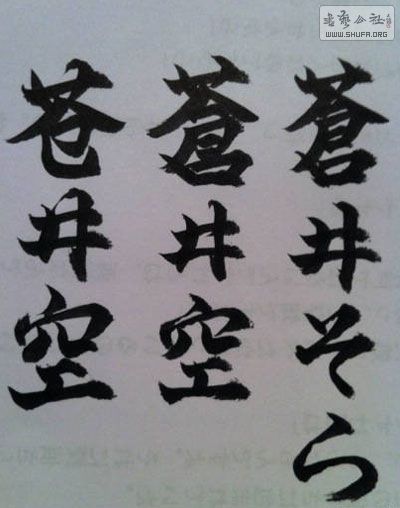 蒼井そら
蒼井空
苍井空
書藝公社
WWW.SHUFA.ORG